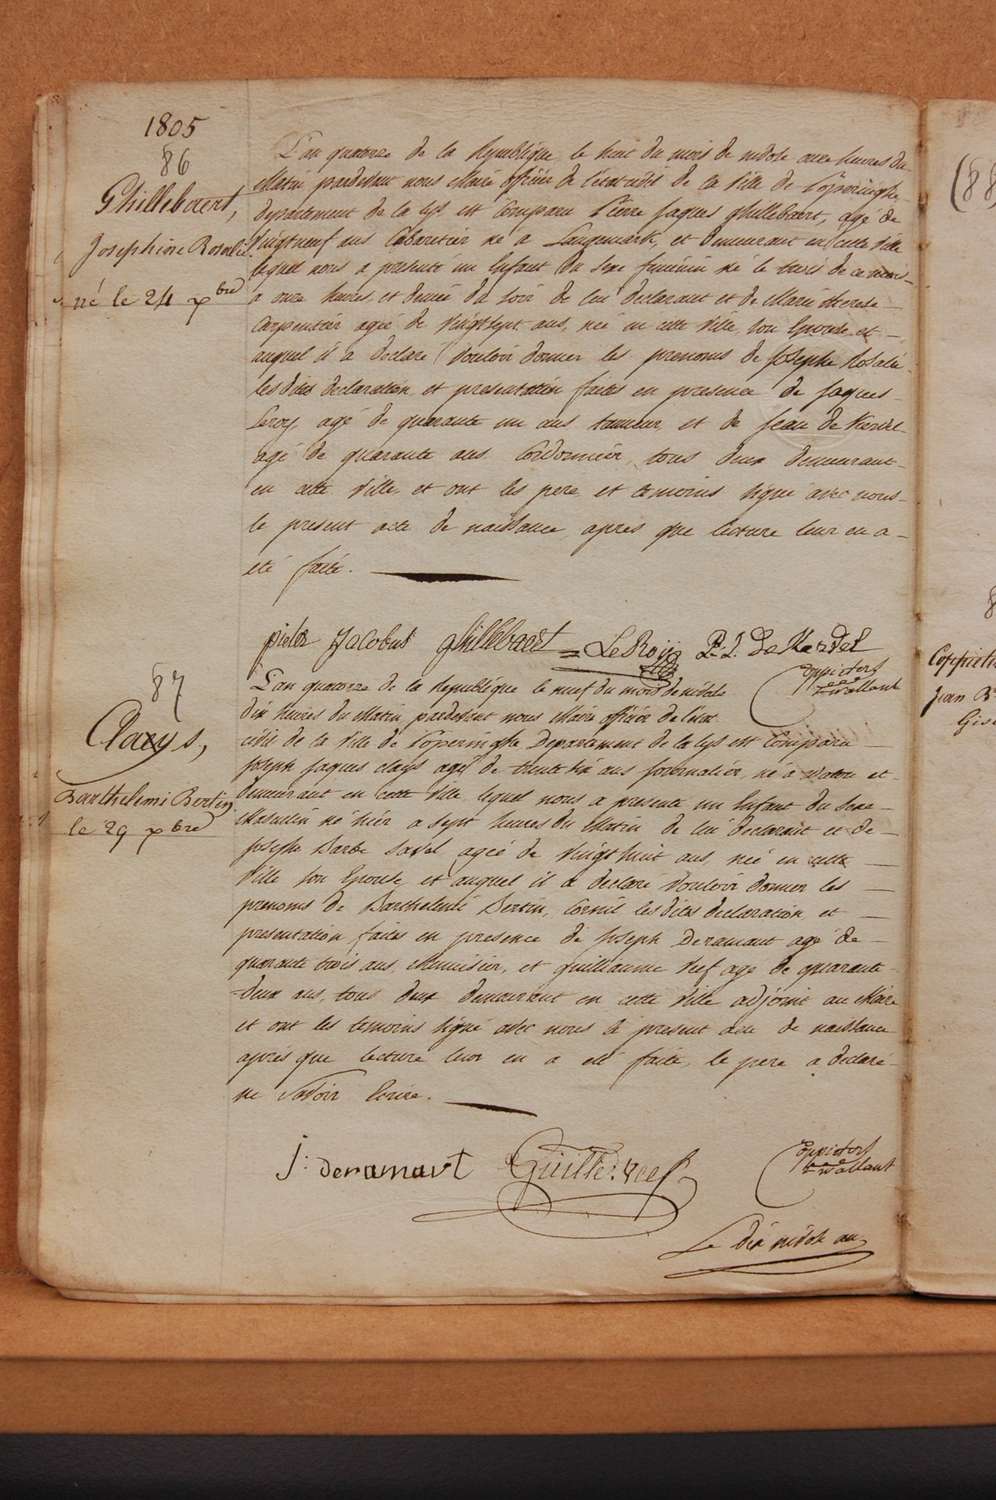 1805
86
Ghillebaert,
Josephine Rosalie
né le 24 xbre
L'an quatorze de la Republique le huit du mois de nivose onze heures du
Matin pardevant nous Maire officier de l'etat civil de la ville de Poperinghe
departement de la Lys est Comparu Pierre Jaques Ghillebaert, agé de
vingtneuf ans Cabaretier né a Langemark, et demeurant en cette ville
lequel nous a presenté un Enfant du sexe feminin né le trois de ce mois
a onze heures et demie du soir de lui declarant et de Marie therese
Carpentier agée de vingtsept ans, née en cette ville, son Epouse et
auquel il a declaré vouloir donner les prenoms de Josephe Rosalie
les dites declaration et presentation faites en presence de Jaques
Leroy agé de quarante un ans tanneur et de Jean de
agé de quarante ans Cordonnier, tous deux demeurant
en cette ville, et ont les pere et temoins signé avec nous
le present acte de naissance apres que lecture leur en a
été faite.
pieter Jacobus Ghillebaert LeRoij P. J.
87
Claeys,
Barthelemi Bertin
le 29 xbre
L'an quatorze de la Republique le neuf du mois de nivose
dix heures du Matin pardevant nous Maire officier de l'état
civil de la ville de Poperinghe Departement de la Lys est Comparu
Joseph Jaques Claeys agé de trente six ans journalier, né a Watou et
demeurant en cette ville lequel nous a presente un Enfant du sexe
Masculin né hier a sept heures du Matin de lui declarant et de
Joseph Barbe agée de vingt huit ans, née en cette
ville son Epouse, et auquel il a declaré vouloir donner les
prenoms de Barthelemi Bertin, Cornil les dites declaration et
presentation faites en presence de Joseph Deramaut agé de
quarante trois ans, Menuisier, et Guillaume Reef agé de quarante
deux ans, tous deux demeurant en cette ville adjoint au Maire
et ont les temoins signé avec nous le present acte de naissance
après que lecture leur en a été faite, le pere a declaré
ne savoir Ecrire.
J: Deramaut Guille: Reef
Le dix nivose an